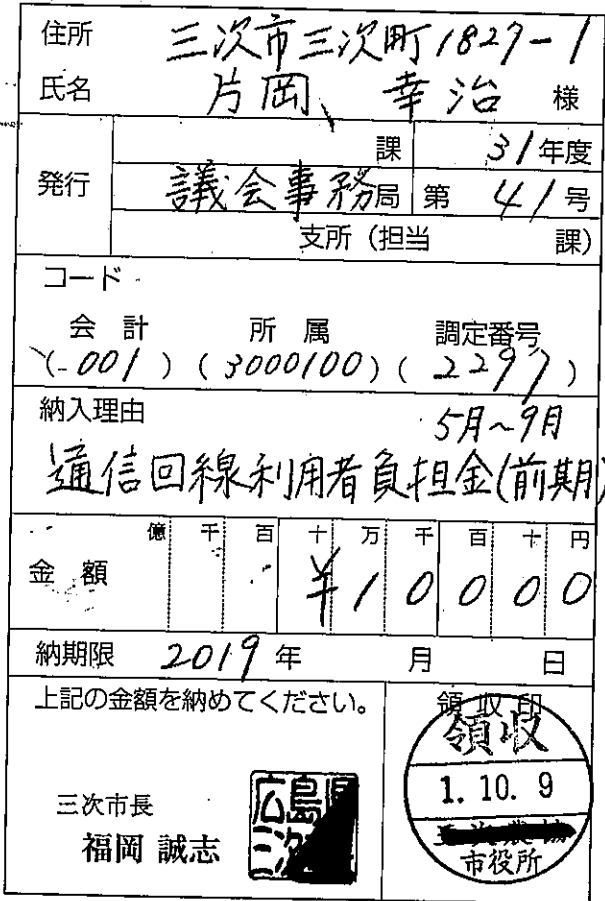 住所 三次市三次町1827-1
氏名 片岡、幸治 様
発行
課 31年度
議会事務局 第 41号
支所（担当 課）
コード
会計 所属 調定番号
(001) (3000100) (2297)
納入理由 5月~9月
通信回線利用者負担金(前期)
億 千 百 十 万 千 百 十 円
金額 ¥10000
納期限 2019年 月 日
上記の金額を納めてください。
三次市長
福岡 誠志
広島
三次
領収印
領収
1.10.9
市役所